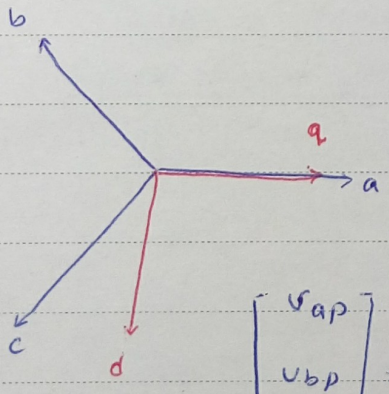 b
q
a
c
d
v_ap
v_bp